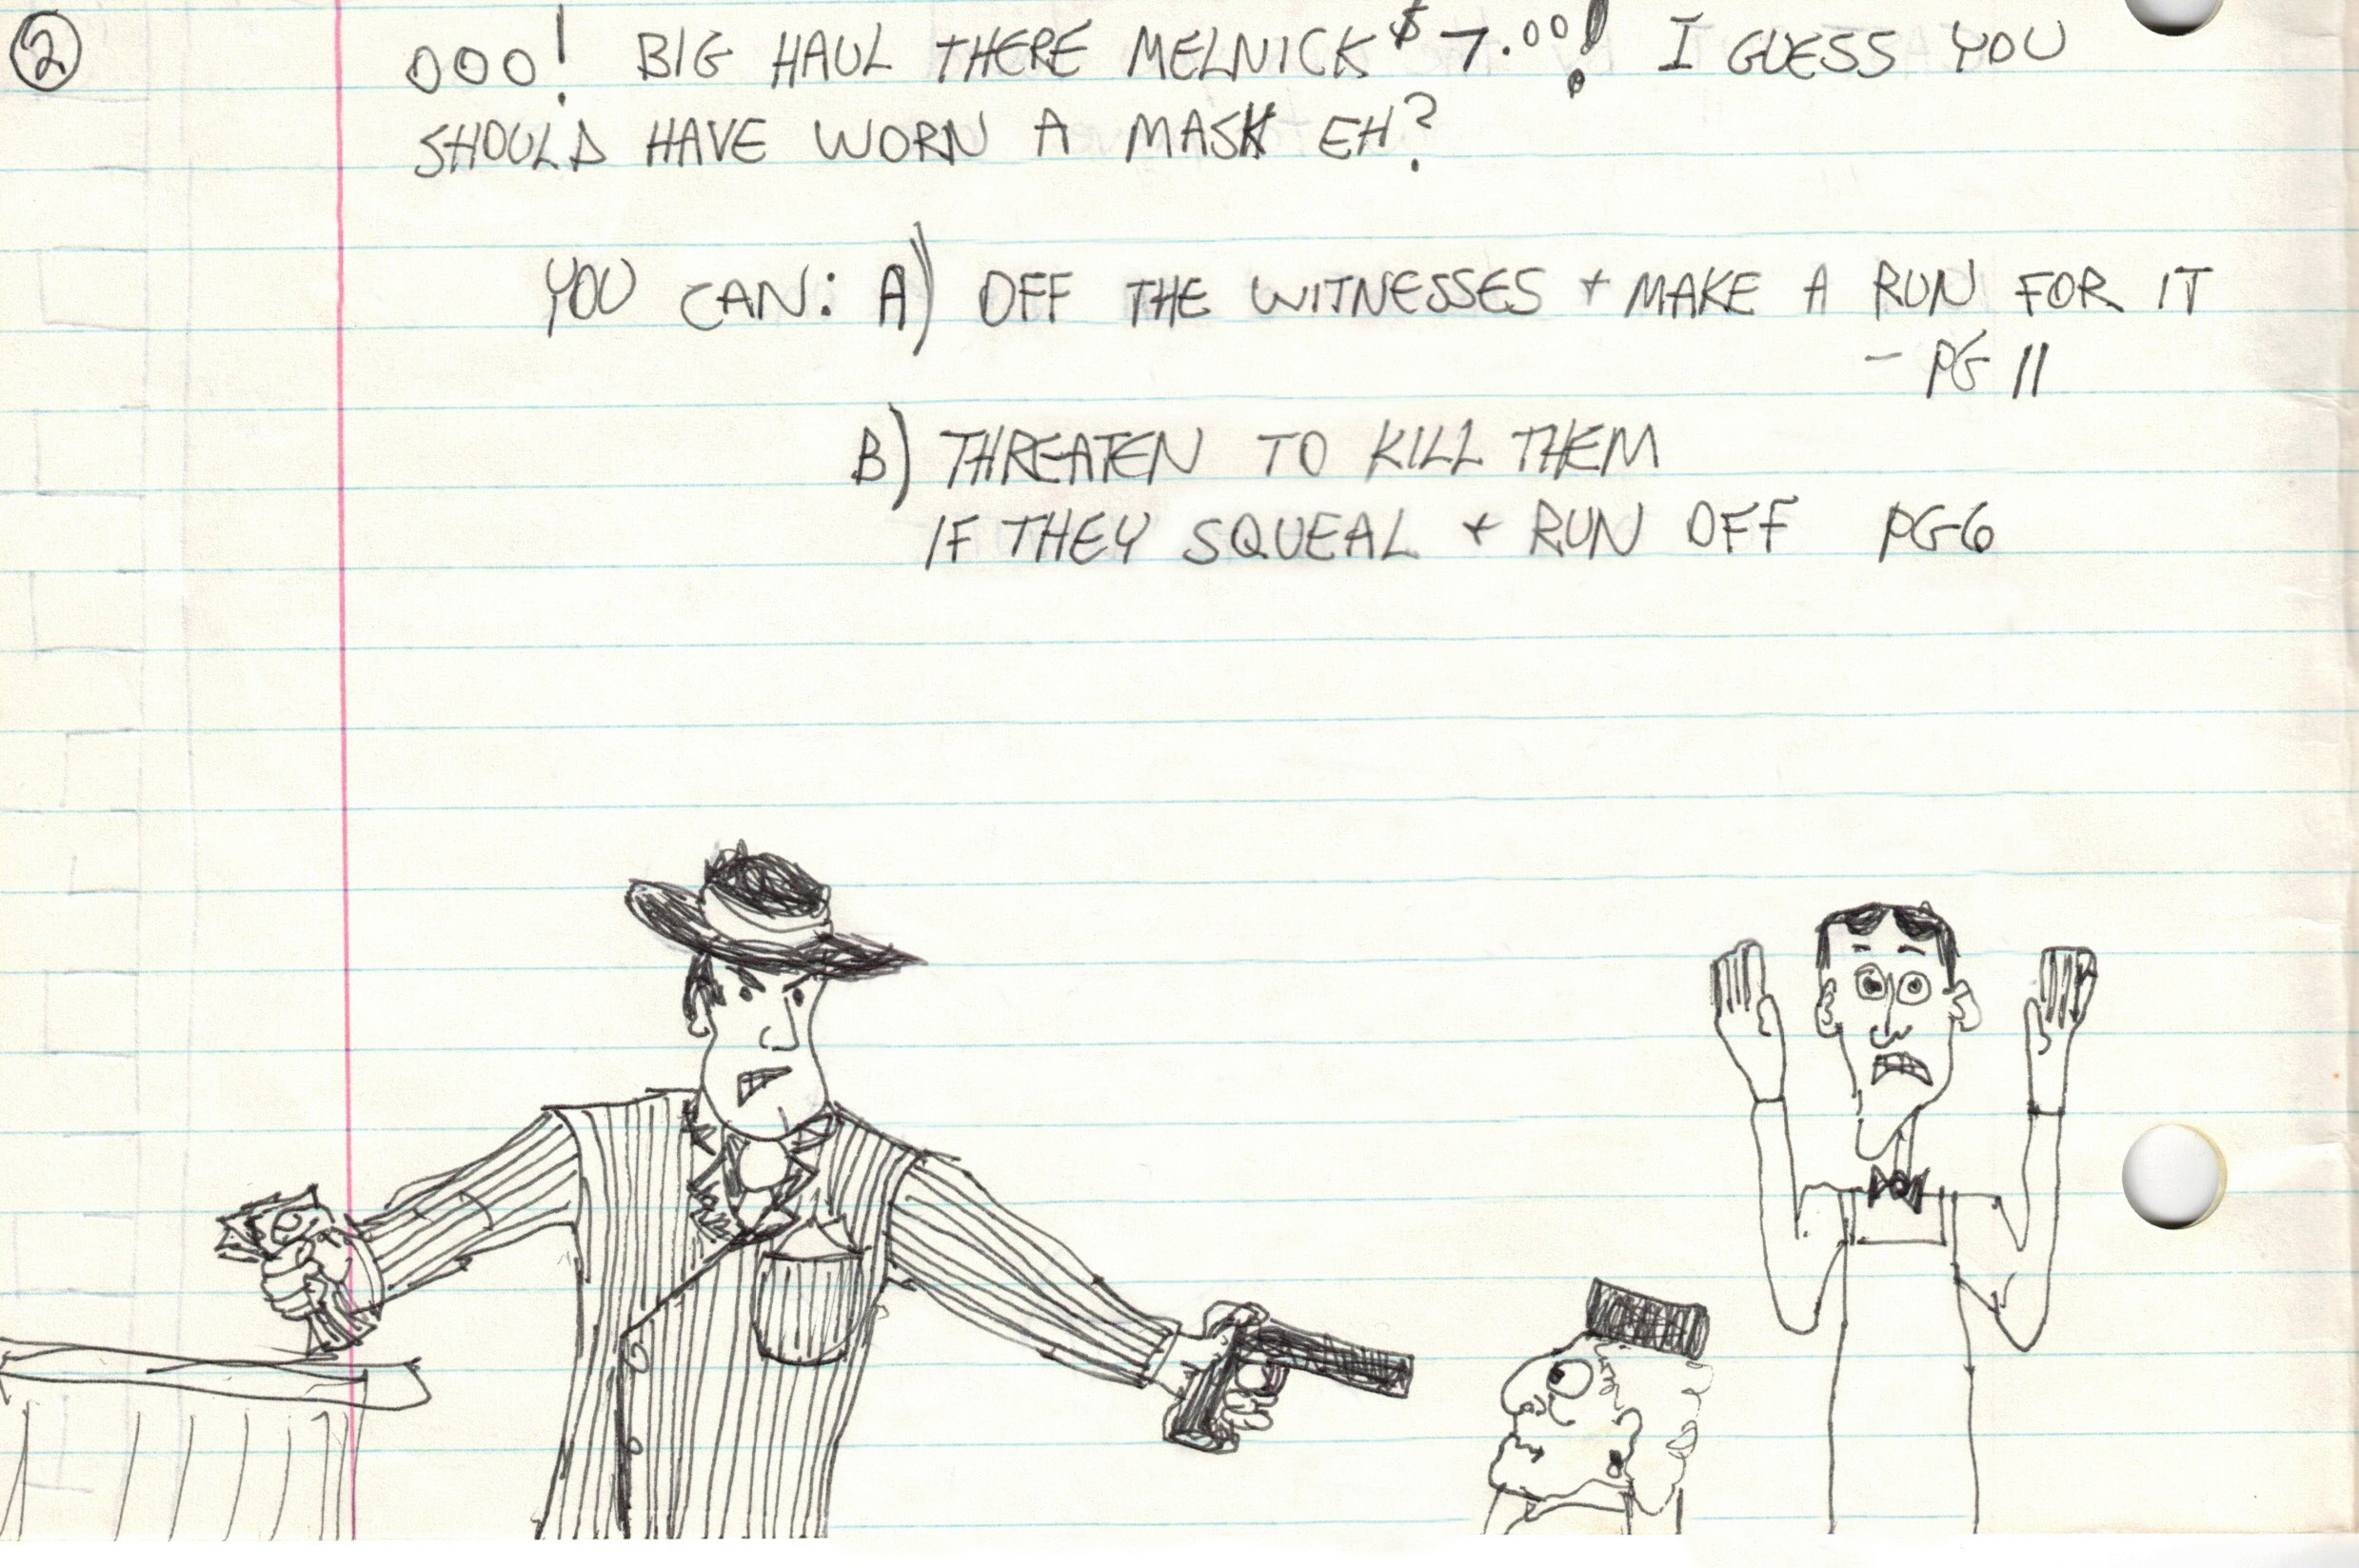 2
OOO! BIG HAUL THERE MELNICK $7.00! I GUESS YOU
SHOULD HAVE WORN A MASK EH?
YOU CAN: A) OFF THE WITNESSES + MAKE A RUN FOR IT
- PG 11
B) THREATEN TO KILL THEM
IF THEY SQUEAL + RUN OFF PG 6